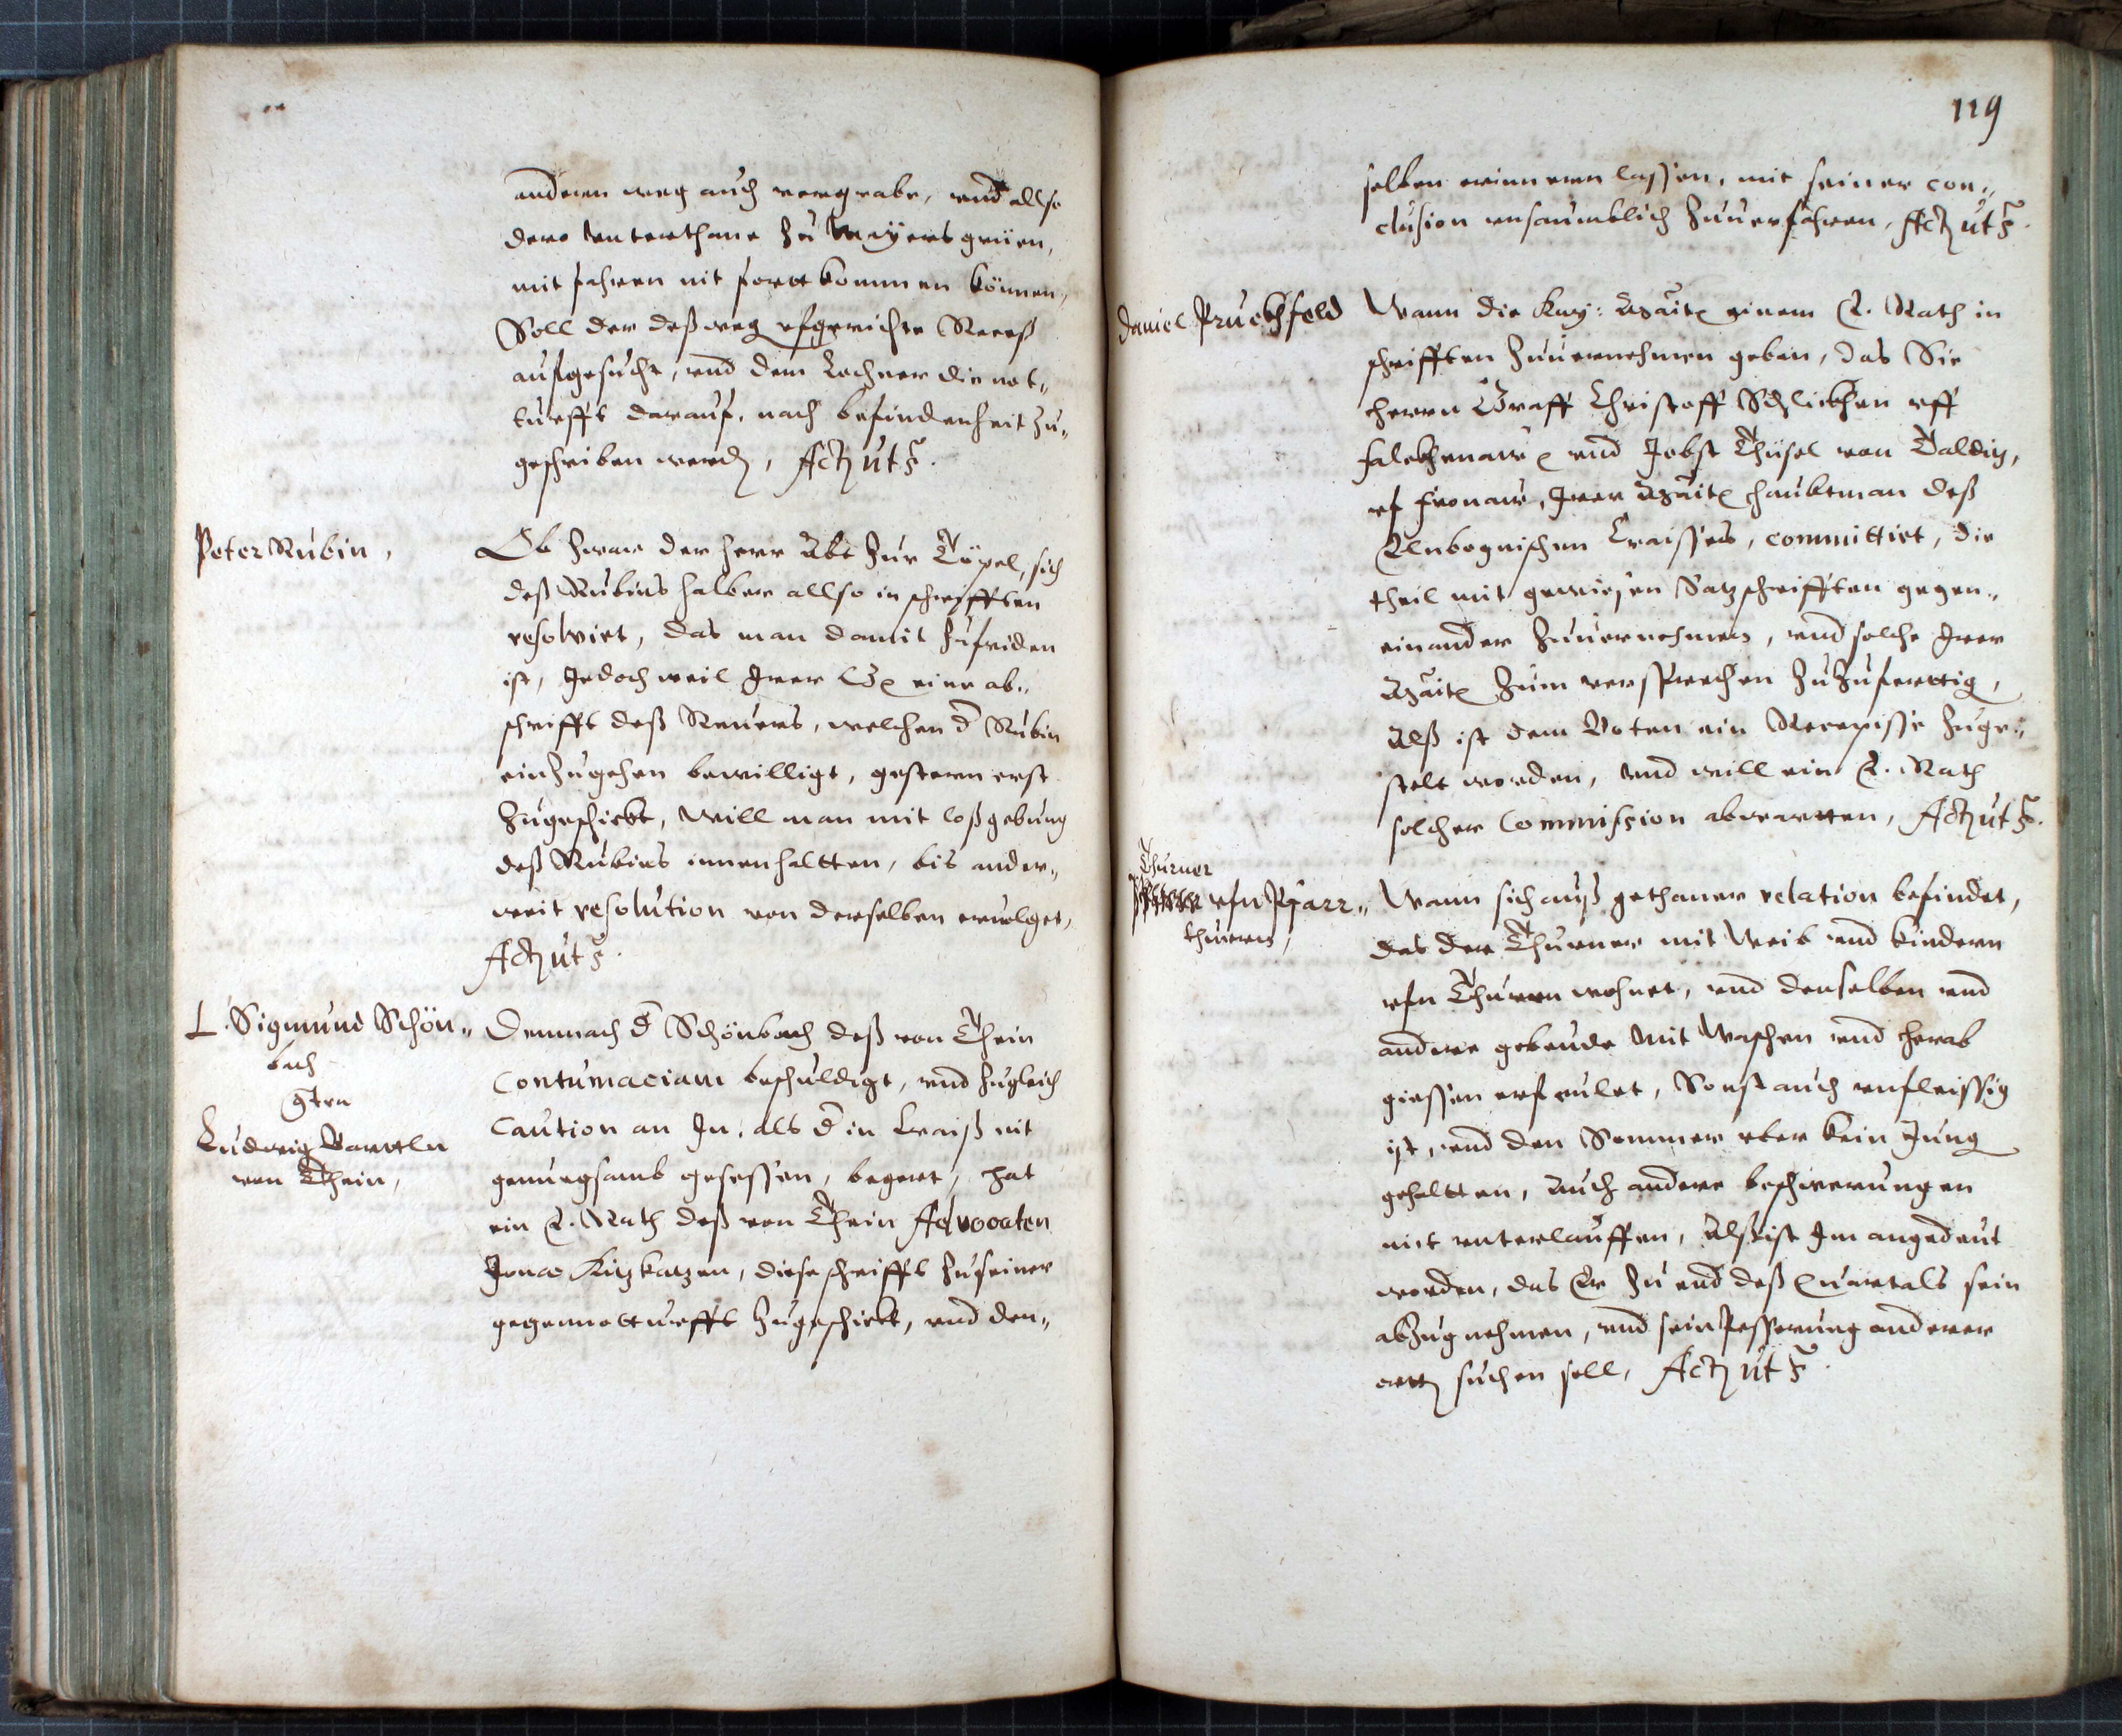 anderen weg auch vergrabe, und allso
dero Unterthane zu Mayersgrüen,
mit fahren nit fortt kommen können,
Soll der deßweg ufgerichte Receß
aufgesucht, und dem Lochner die not„
turfft darauf, nach befindenheit zu„
geschriben werd, Act ut s.
Peter Rubin,
Ob zwar der Herr Abt zur Töpel, sich
deß Rubins halber allso in schrifften
resolvirt, das man damit zufriden
ist, Jedoch weil Irer G. eine ab„
schrifft deß Revers, welchen d Rubin
einzugehen bewilligt, gestern erst
zugeschickt, will man mit loßgebung
deß Rubins innenhaltten, bis ander„
weit resolution von derselben ervolget,
Act ut s.
L. Sigmund Schön„
bach
gtra
Ludwig
von Thein,
Demnach d Schönbach deß von Thein
Contumaciam beschuldigt, und zugleich
Caution an In, als d in Craiß nit
genuegsamb gesessen, begert, hat
ein E. Rath deß von Thein Advocaten
Jonas Kizkazen, diese schrifft zu seiner
gegennotturfft zugeschickt, und den„
119
selben erinnern lassen, mit seiner con„
clusion unsaumblich zuuerfahren, Act ut s.
Daniel Pruckhfeld
Wann die Kay: Mait. einem E. Rath in
schrifften zuuernehmen geben, das Sie
Herrn Graff Christoff Schlickhen uff
Falckhenaw. und Jobst Thüsel von Taldiz,
uf Fronaw, Irer Mait. Haubtman deß
Elnbognischen Craisses, committirt, die
theil mit gewissen Sazschrifften gegen„
einander zuuernehmen, und solche Irer
Mait. zum versprechen zuzufertig,
Alß ist dem Boten ein Recepisse zuge„
stelt worden, und will ein E. Rath
solcher Commission abwartten, Act ut s.
Thurner
ufn Pfarr„
thurn,
Wann sich auß gethaner relation befindet,
das der Thurner mit Weib und kindern
ufn Thuren wohnet, und denselben und
andere gebeude mit Waschen und herab
giessen erfeulet, Sonst auch unfleissig
ist, und den Sommer uber kein Jung
gehaltten, Auch andere beschwerungen
mit unterlauffen, Alß ist Im angedeut
worden, das Er zu end deß Quartals sein
abzug nehmen, und sein Pesserung anderer
ortt suchen soll, Act ut s.